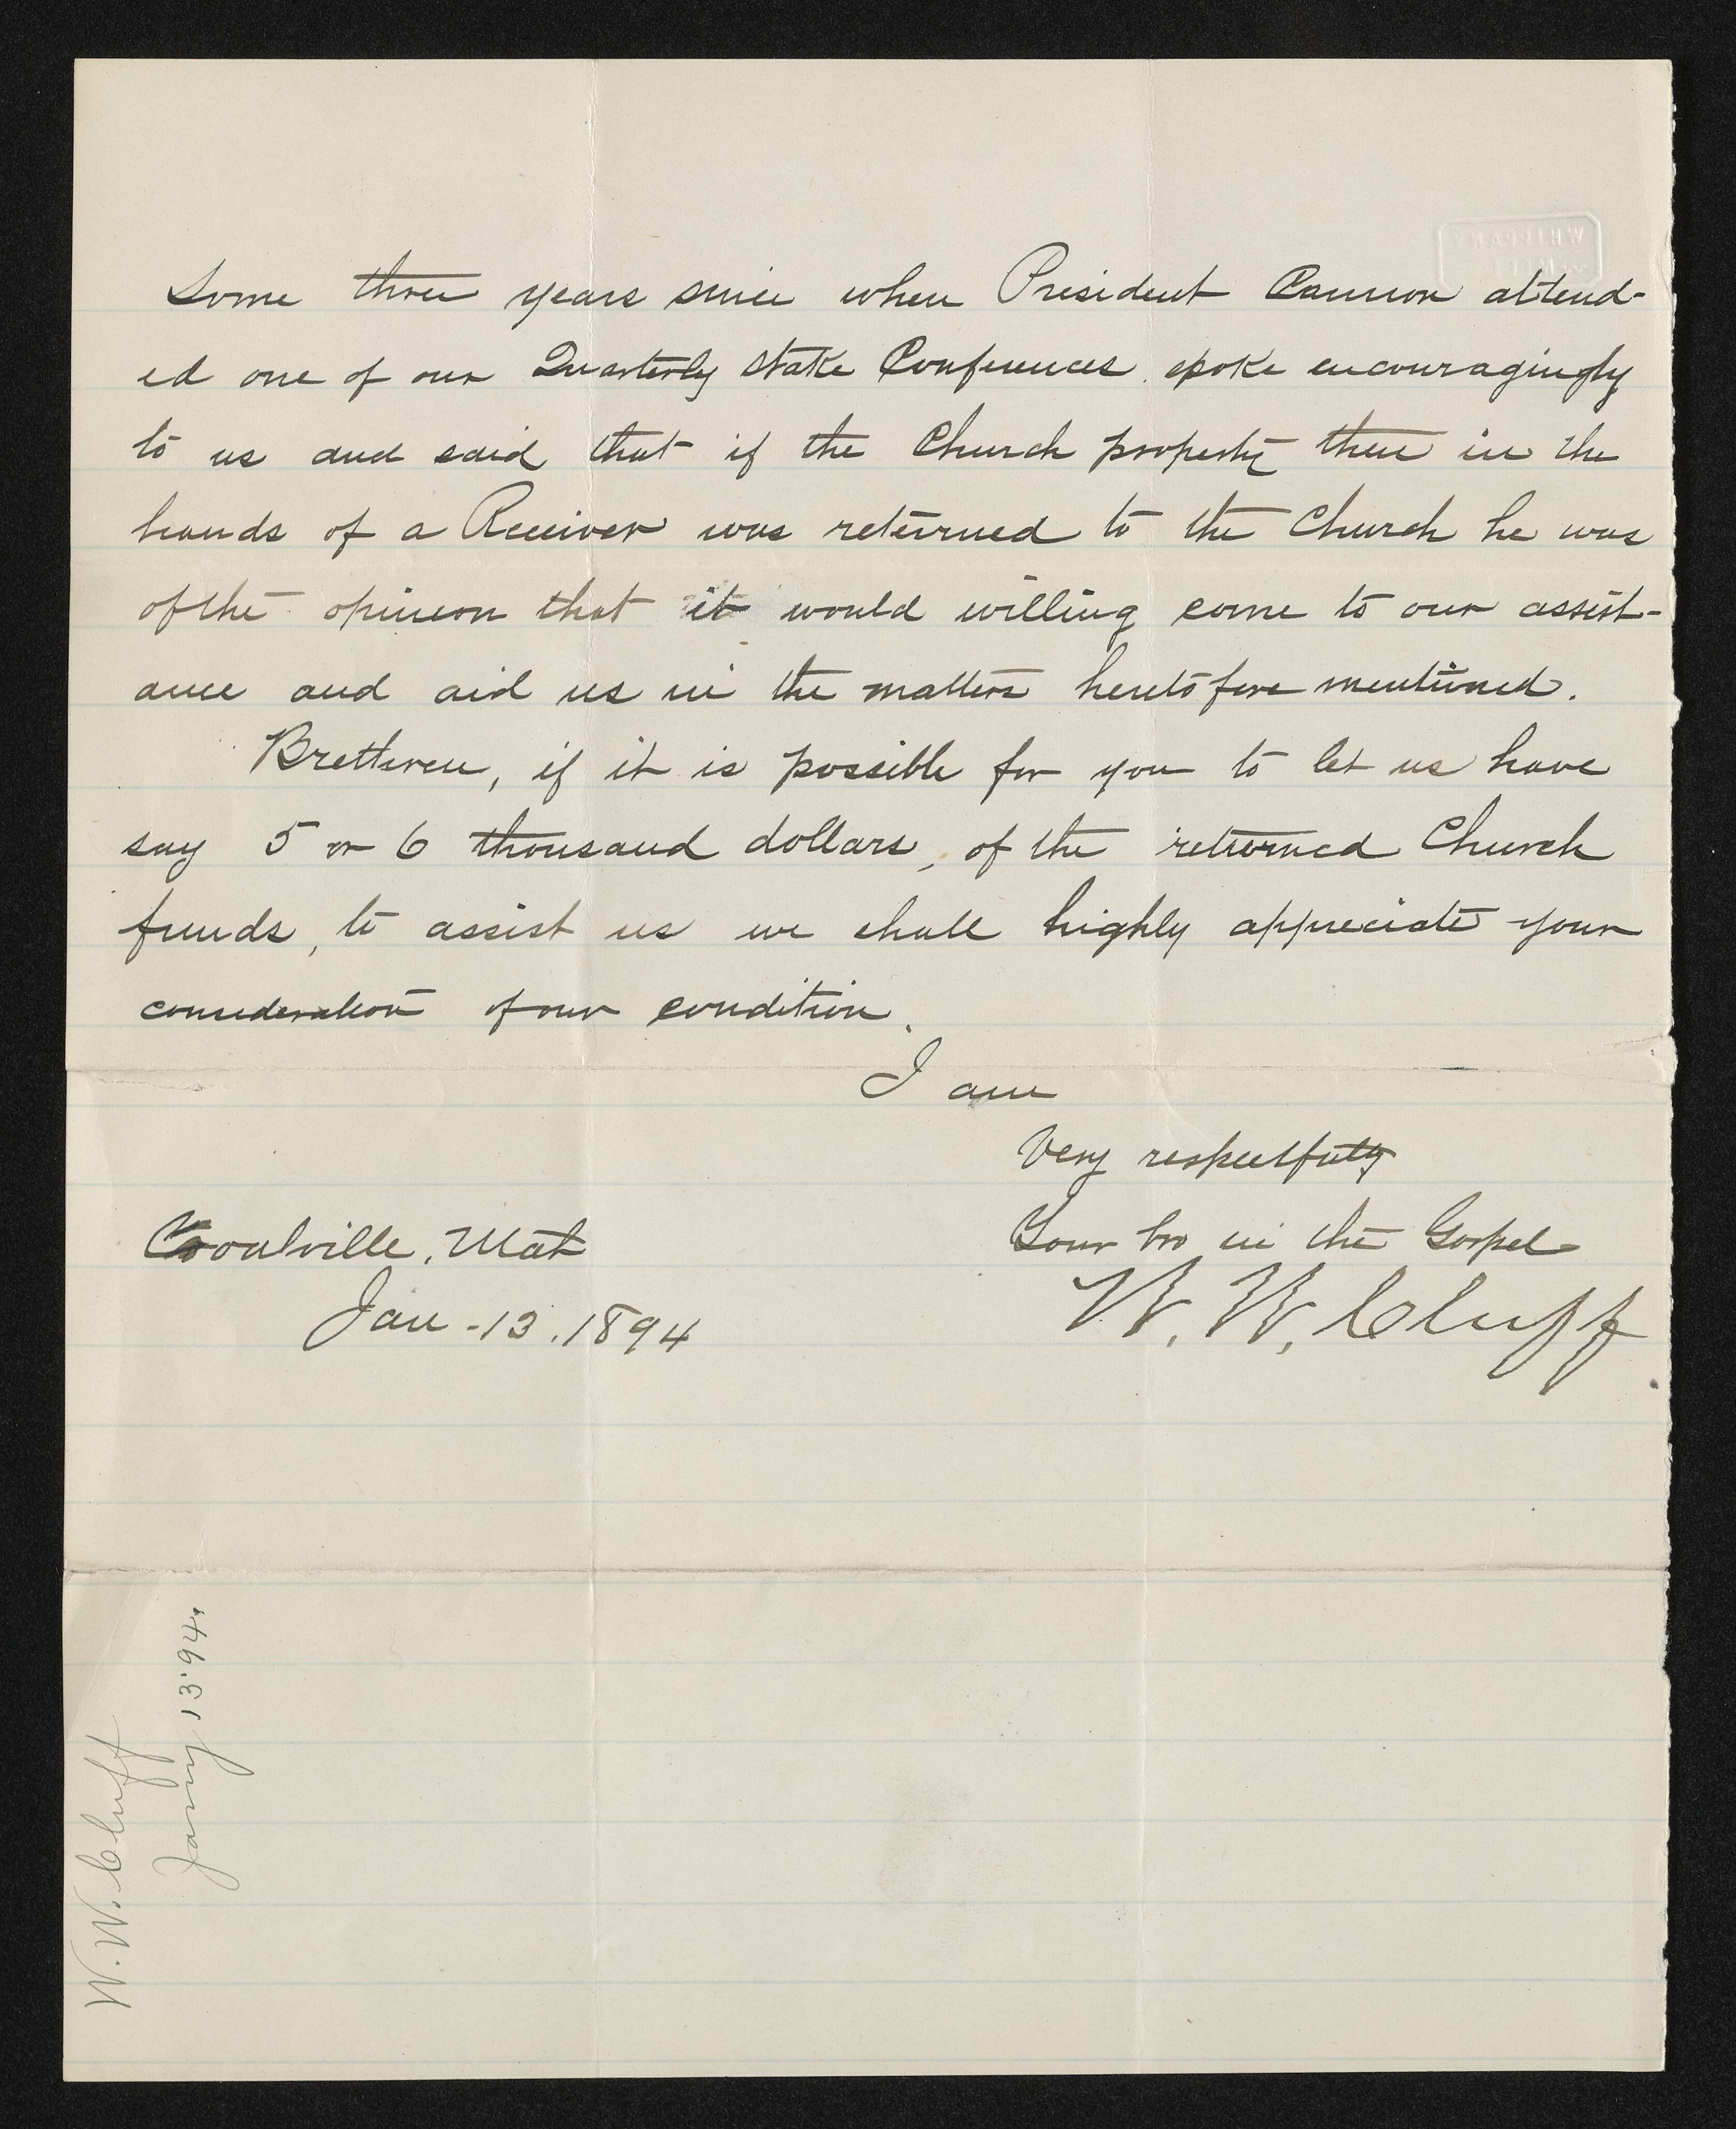 WHIPPANY
MILLS
Some three years since when President Cannon attend-
ed one of our Quarterly Stake Conferences spoke encouragingly
to us and said that if the Church property then in the
hands of a Receiver was returned to the Church he was
of the opinion that it would willing come to our assist-
ance and aid us in the matters heretofore mentioned.
Brethren, if it is possible for you to let us have
say 5 or 6 thousand dollars, of the returned Church
funds, to assist us we shall highly appreciate your
consideration of our condition.
I am
Very respectfully
Your bro in the Gospel
W. W. Cluff
Coalville, Utah
Jan - 13. 1894
W. W. Cluff
Jany 13 '94.